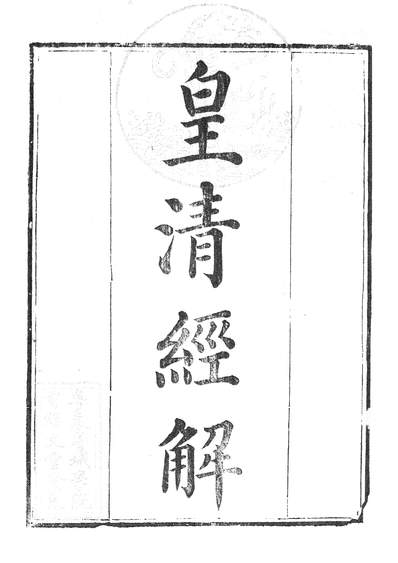 皇清經解